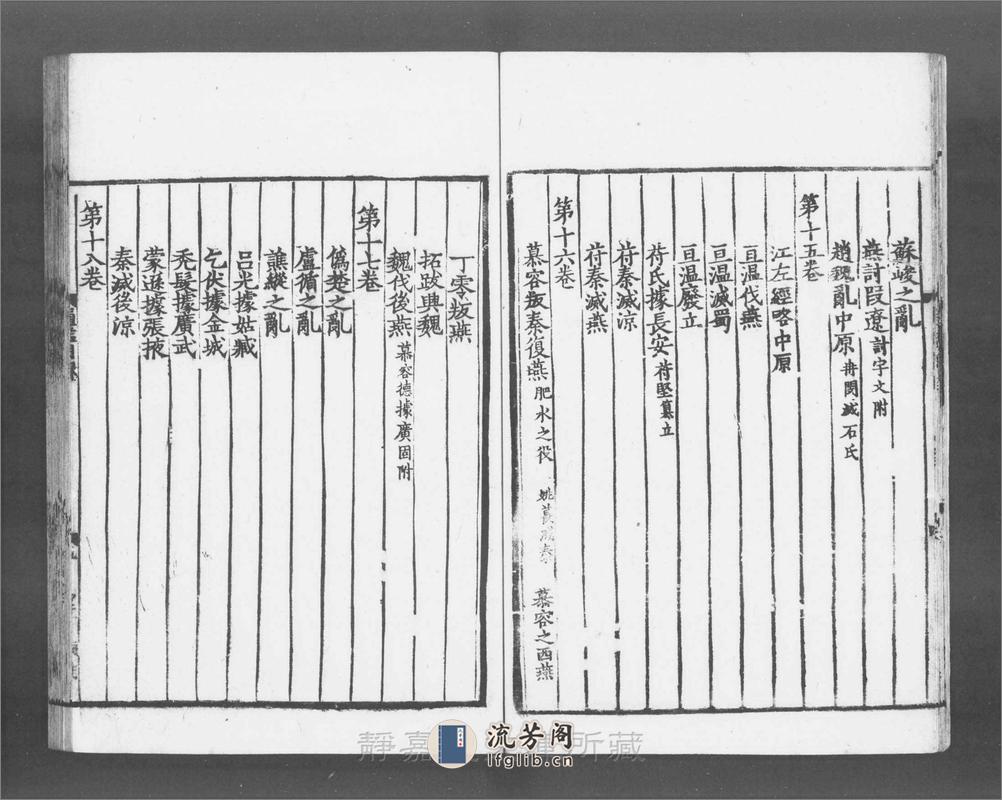 蘇峻之亂
燕討段遼 討宇文附
趙魏亂中原 冉閔滅石氏
第十五卷
江左經略中原
亘温伐燕
亘温滅蜀
亘温廢立
苻氏據長安 苻堅簒立
苻秦滅涼
苻秦滅燕
第十六卷
慕容叛秦復燕 肥水之役 姚萇 慕容之西燕
丁零叛燕
拓跋興魏
魏伐後燕 慕容德據廣固附
第十七卷
僞楚之亂
盧循之亂
譙縱之亂
呂光據姑臧
乞伏據金城
禿髮據廣武
蒙遜據張掖
秦滅後涼
第十八卷
流芳阁
lfglib.cn
靜嘉 所藏